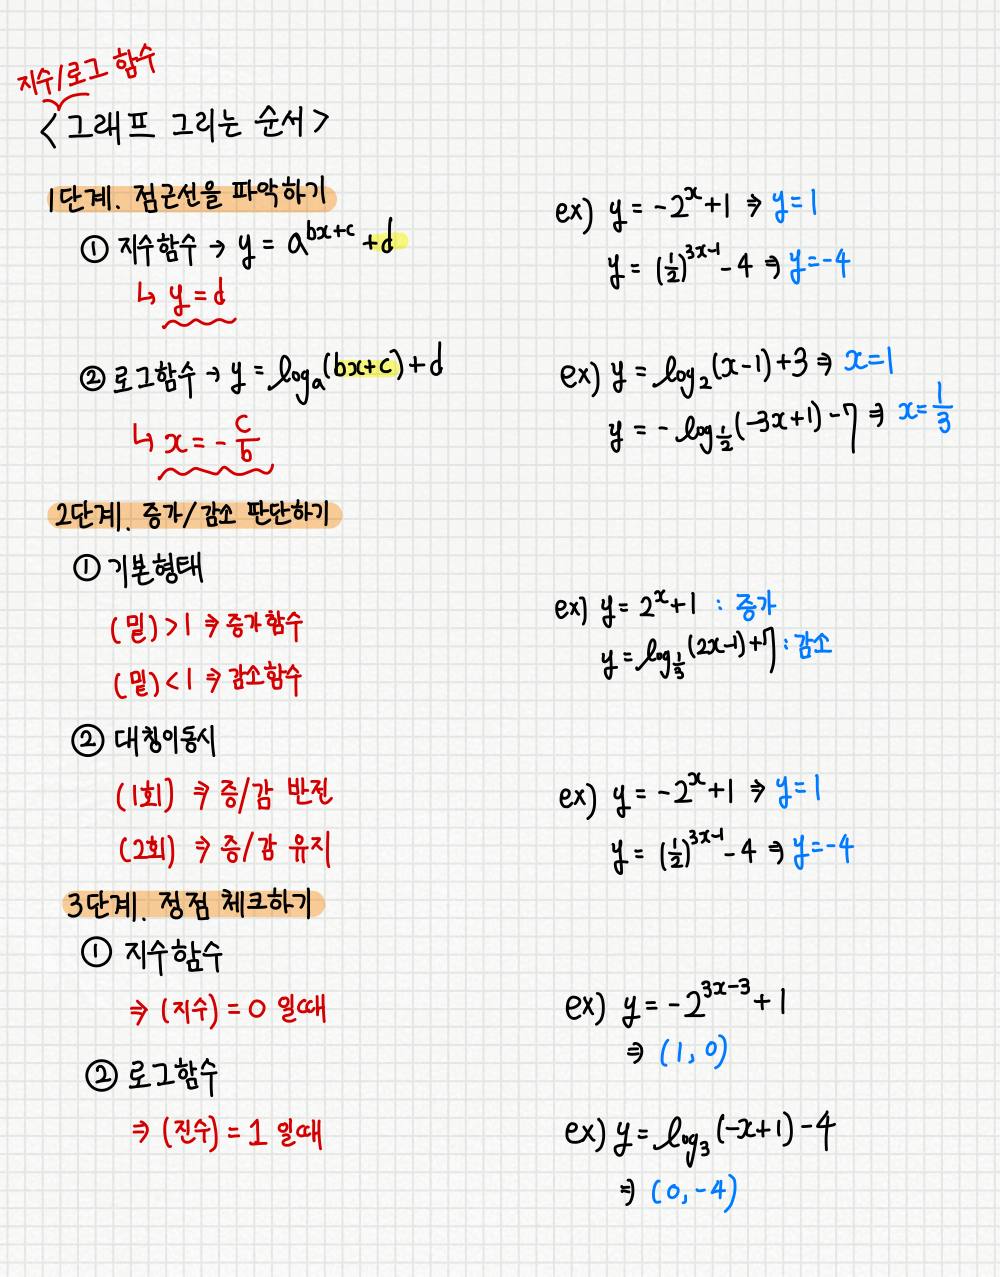 지수/로그 함수
<그래프 그리는 순서>
1단계. 점근선을 파악하기
① 지수함수 → y = a^(bx+c) + d
↳ y = d
ex) y = -2^x + 1 ⇒ y = 1
y = (1/2)^(3x-1) - 4 ⇒ y = -4
② 로그함수 → y = log_a(bx+c) + d
↳ x = -c/b
ex) y = log_2(x-1) + 3 ⇒ x = 1
y = -log_(1/2)(-3x+1) - 7 ⇒ x = 1/3
2단계. 증가/감소 판단하기
① 기본형태
(밑) > 1 ⇒ 증가함수
(밑) < 1 ⇒ 감소함수
ex) y = 2^x + 1 : 증가
y = log_(1/3)(2x-1) + 7 : 감소
② 대칭이동시
(1회) ⇒ 증/감 반전
(2회) ⇒ 증/감 유지
ex) y = -2^x + 1 ⇒ y = 1
y = (1/2)^(3x-1) - 4 ⇒ y = -4
3단계. 정점 체크하기
① 지수함수
⇒ (지수) = 0 일때
ex) y = -2^(3x-3) + 1
⇒ (1, 0)
② 로그함수
⇒ (진수) = 1 일때
ex) y = log_3(-x+1) - 4
⇒ (0, -4)